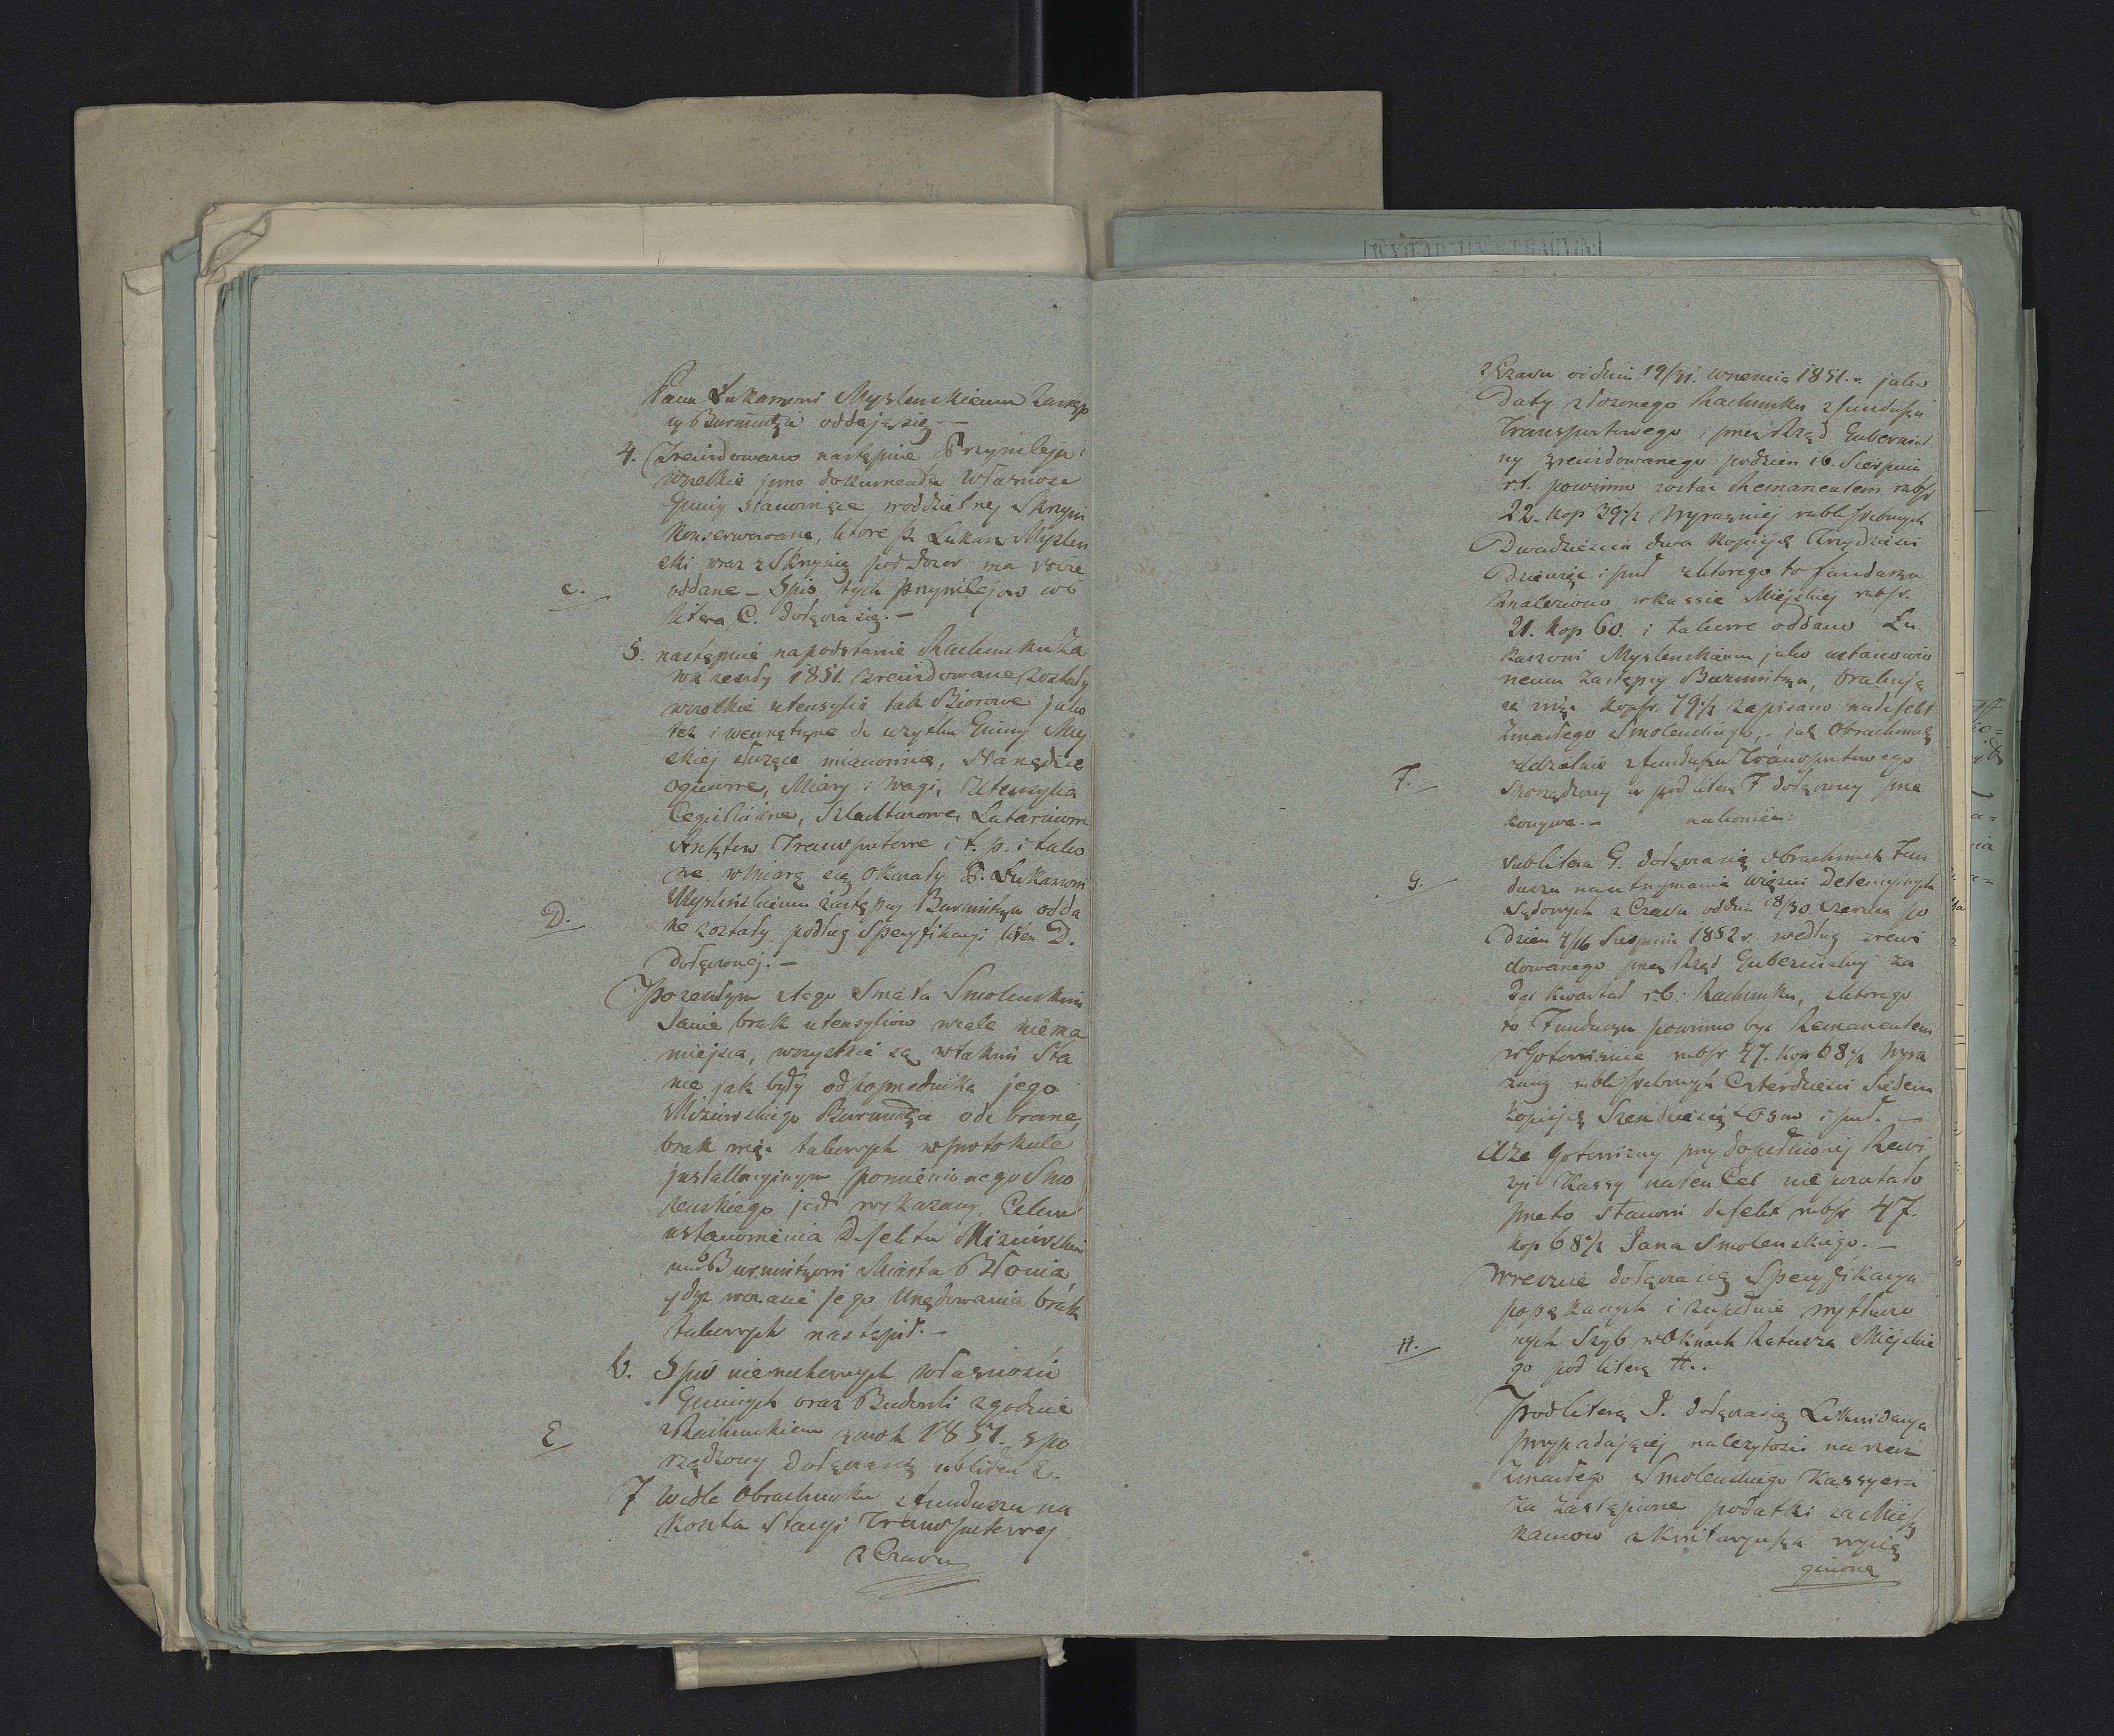 Panu Łukaszowi Myslenskiemu Zastęp
cy Burmistrza oddają się. —
4. Zrewidowano następnie Przywileja i
wszelkie inne dokumenta własnosc
Gminy stanowiące, w oddzielnej Skrzyni
Konserwowane, które P. Łukasz Myslen
ski wraz z Skrzynią pod dozor ma sobie
c. oddane — Spis tych przywilejow sub
litera C. dołącza się. —
5. następnie na podstawie Rachunku Za
rok zeszły 1851. zrewidowane zostały
wszelkie utensylia tak Biorowe jako
też i wewnętrzne do uzytku Gminy Miey
skiej słuzące mianowicie, Narzędzie
ogniowe, Miary i Wagi, Utensylia
Cegielniane, Szlachtuzowe, Latarniowe
Aresztu Transportowe i t. p. i tako
we w miarę się okazały P. Łukaszowi
Myslenskiemu zastępcy Burmistrza odda
D. ne zostały podług Specyfikacyi liter D.
dołączonej. —
Po zeszłym z tego Swiata Smolenskim
Janie brak utensyliow wcale niema
miejsca, wszystkie są w takim Sta
nie jak były od poprzednika jego
Misiewskiego Burmistrza ode brane,
brak więc takowych w protokule
justallacyjnym pomienionego Smo
lenskiego jest wykazany, Celem
ustanowienia Defektu Misiewskie
mu Burmistrzowi Miasta Błonia,
gdyz w czasie jego Urzędowania brak
takowych nastąpił. —
6. Spis nieruchomych własnosci
Gminnych oraz Budowli zgodnie
E z Rachunkiem za rok 1851. spo
rządzony dołącza się sub litera E.
7 Wedle Obrachunku z funduszu na
koszta Stacyi Transportowej
z Czasu
z Czasu od dnia 19/31. wrzesnia 1851. r. jako
Daty złozonego Rachunku z funduszu
Transportowego i przez Rząd Gubernial
ny zrewidowanego po dzien 16. Sierpnia
r. t. powinno zostac Remanentem rubsr.
22. kop 39½ Wyrazniej rubli srebrnych
Dwadziescia dwa kopiejek Trzydziesci
Dziewięc i pul z ktorego to funduszu
Znaleziono w kassie Miejskiej rubsr.
21. kop 60. i takowe oddano Łu
kaszowi Myslenskiemu jako ustanowio
nemu Zastępcy Burmistrza, brakują
ce więc kopsr. 79½ zapisano na defekt
Zmarłego Smolenskiego, — jak Obrachunek
oddzielnie z funduszu Transportowego
F. Sporządzony a pod litera F dołączony prze
konywa. — nakoniec:
sub litera G. dołącza się obrachunek Fun
G. duszu na utrzymanie więzni Detencyjnych
Sądowych z Czasu od dnia 18/30. Czerwca po
dzien 4/16 Sierpnia 1852 r. według zrewi
dowanego przez Rząd Gubernialny za
2gi kwartał r. b. Rachunku, z ktorego
to Funduszu powinno byc Remanentem
w Gotowiznie rubsr 47. kop 68½ Wyra
zniej rubli srebrnych Czterdziesci Siedem
kopiejek Szescdziesiąt Osm i puł. —
a ze Gotowizny przy dopełnionej Rewi
zyi Kassy na ten Cel nie pozostało
przeto stanowi defekt rubsr 47.
kop 68½ Jana Smolenskiego. —
Wreszcie dołącza się Specyfikacya
popękanych i zupełnie wytłuczo
H. nych Szyb w Oknach Ratusza Miejskie
go pod literą H..
Pod literą J. dołącza się Likwidacya
przypadającej nalezytosci na rzecz
Zmarłego Smolenskiego Kassyera
za zastąpione podatki za Miesz
kancow z Kwitaryusza wycią
gniona